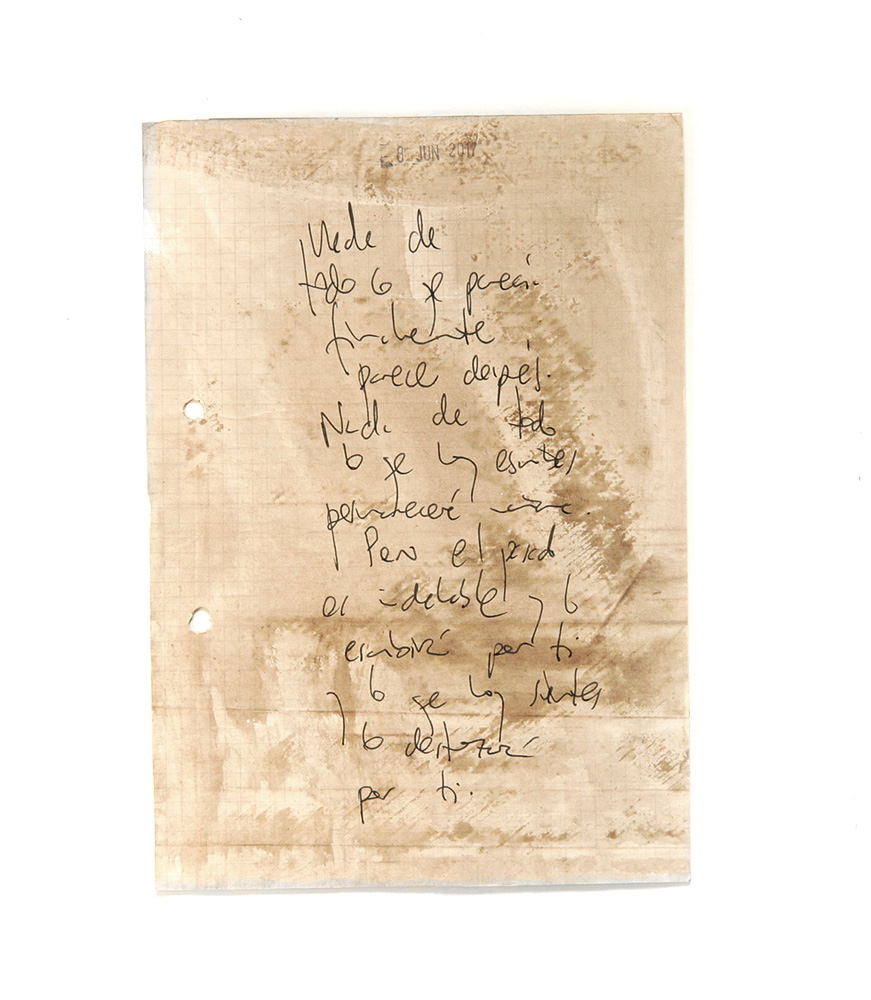 8 JUN 2017
Nada de
todo lo que parecía
finalmente
parece después.
Nada de todo
lo que hoy escribes
permanecerá
Pero el pasado
es indeleble y lo
escribirá por ti
y lo que hoy sientes
lo destrozará
por ti.